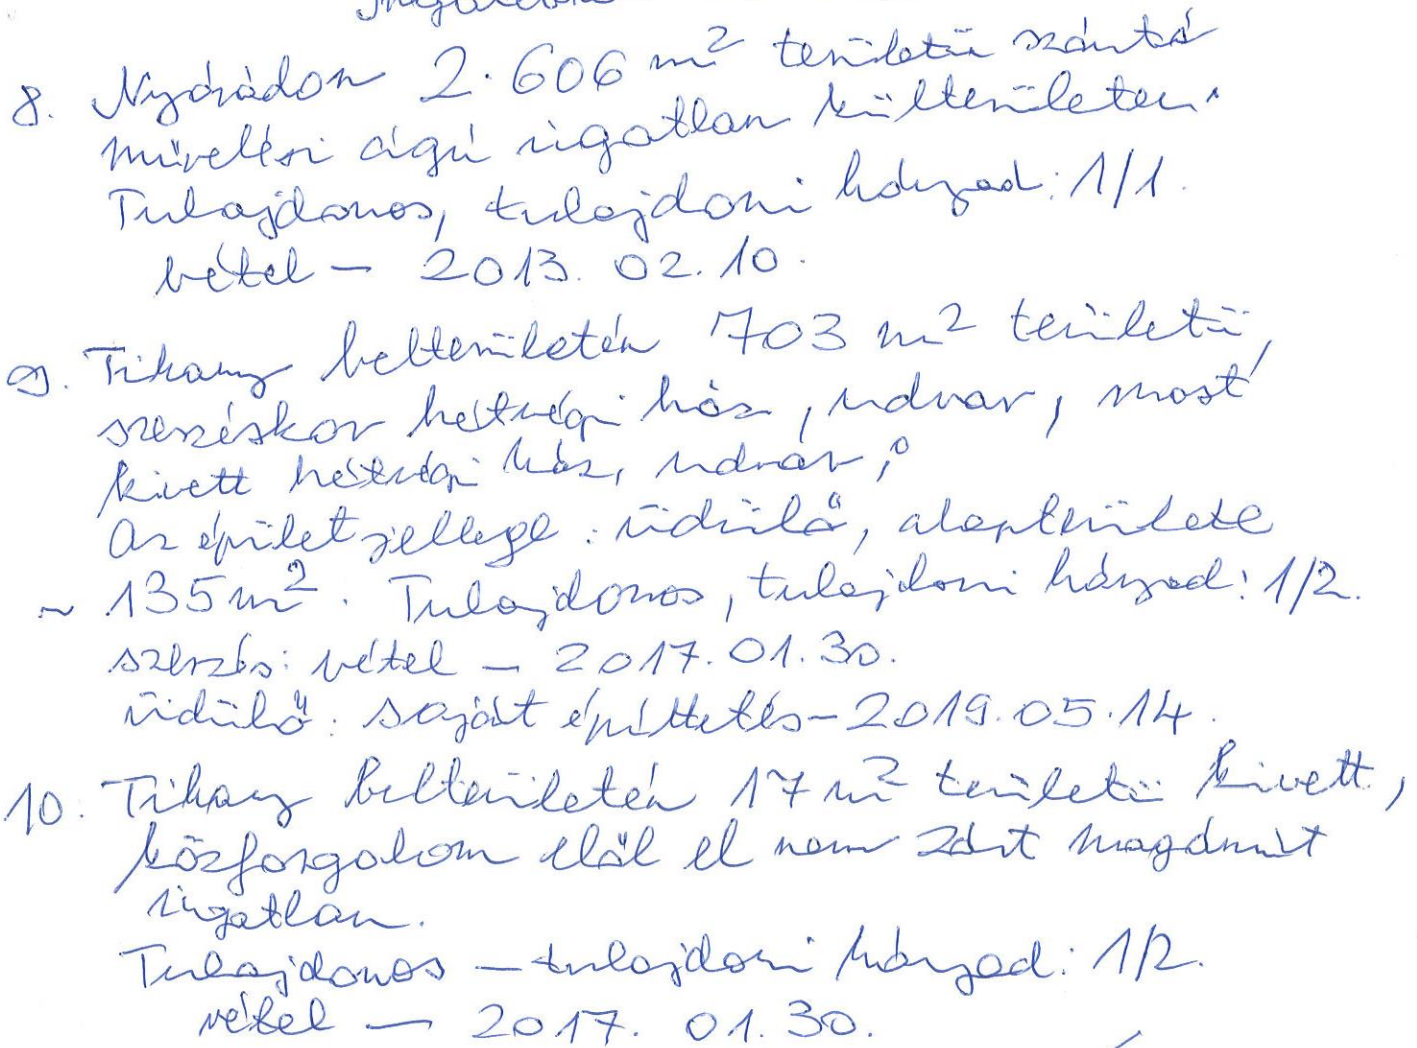 8. Nyárádon 2.606 m² területű szántó
művelési ágú ingatlan külterületen.
Tulajdonos, tulajdoni hányad: 1/1.
vétel – 2013. 02. 10.
9. Tihany belterületén 703 m² területű,
szerzéskor hétvégi ház, udvar, most
kivett hétvégi ház, udvar,
Az épület jellege: üdülő, alapterülete
~ 135 m². Tulajdonos, tulajdoni hányad: 1/2.
szerzés: vétel – 2017. 01. 30.
üdülő: saját építtetés – 2019. 05. 14.
10. Tihany belterületén 17 m² területű kivett,
közforgalom elől el nem zárt magánút
ingatlan.
Tulajdonos – tulajdoni hányad: 1/2.
vétel – 2017. 01. 30.